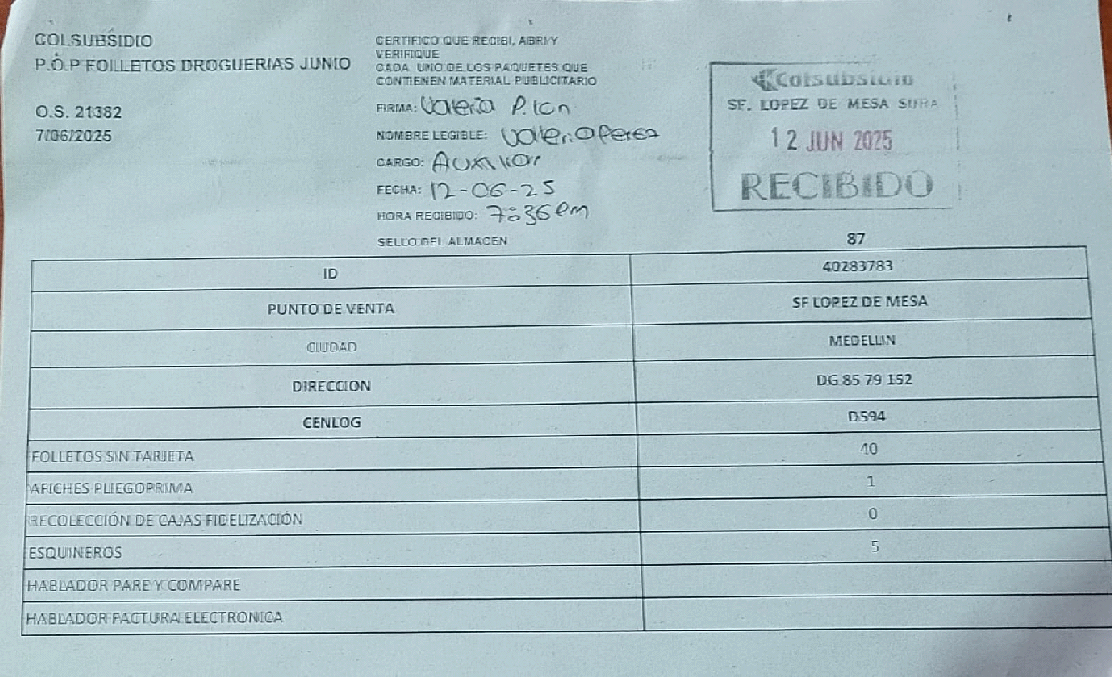 COLSUBSIDIO
P.O.P FOLLETOS DROGUERIAS JUNIO
O.S. 21382
7/06/2025
CERTIFICO QUE RECIBI, ABRI Y
VERIFIQUE
CADA UNO DE LOS PAQUETES QUE
CONTIENEN MATERIAL PUBLICITARIO
FIRMA: Valeria
NOMBRE LEGIBLE: Valeria Perez
CARGO: Auxiliar
FECHA: 12-06-25
HORA RECIBIDO: 7:36
SELLO DEL ALMACEN
Colsubsidio
SF. LOPEZ DE MESA SURA
12 JUN 2025
RECIBIDO
87
ID 40283783
PUNTO DE VENTA SF LOPEZ DE MESA
CIUDAD MEDELLIN
DIRECCION DG 85 79 152
CENLOG D594
FOLLETOS SIN TARJETA 40
AFICHES PLIEGOPRIMA 1
RECOLECCIÓN DE CAJAS FIDELIZACIÓN 0
ESQUINEROS 5
HABLADOR PARE Y COMPARE
HABLADOR FACTURA ELECTRONICA